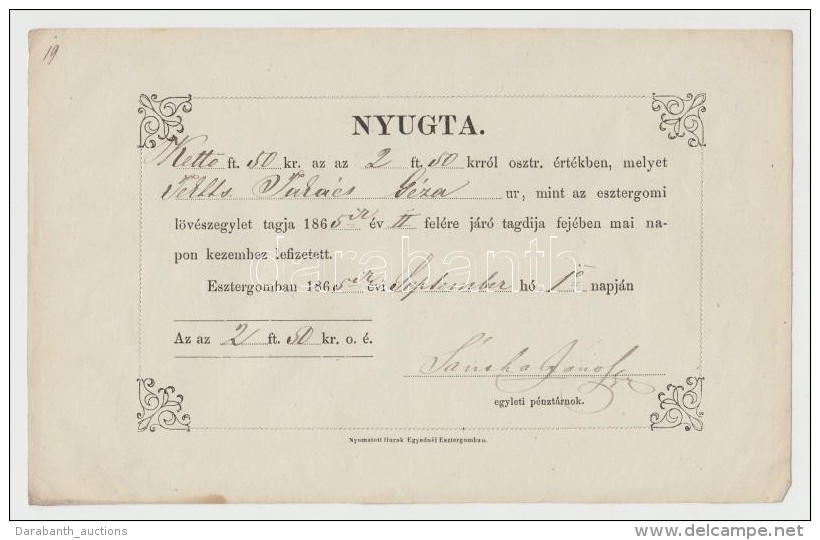 19
NYUGTA.
Kettő ft. 50 kr. az az 2 ft. 50 krról osztr. értékben, melyet
Tekts. Takács Géza ur, mint az esztergomi
lövészegylet tagja 1865ik év II felére járó tagdija fejében mai na-
pon kezemhez lefizetett.
Esztergomban 1865ik évi September hó 1ő napján
Az az 2 ft. 50 kr. o. é.
János
egyleti pénztárnok.
Nyomatott Horák Egyednél Esztergomban.
darabanth
Darabanth_auctions
www.delcampe.net